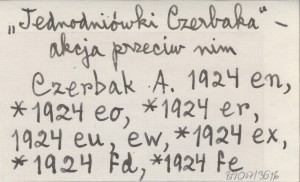 „Jednodniówki Czerbaka” –
akcja przeciw nim
Czerbak A. 1924 en,
*1924 eo, *1924 er,
1924 eu, ew, *1924 ex,
*1924 fd, *1924 fe